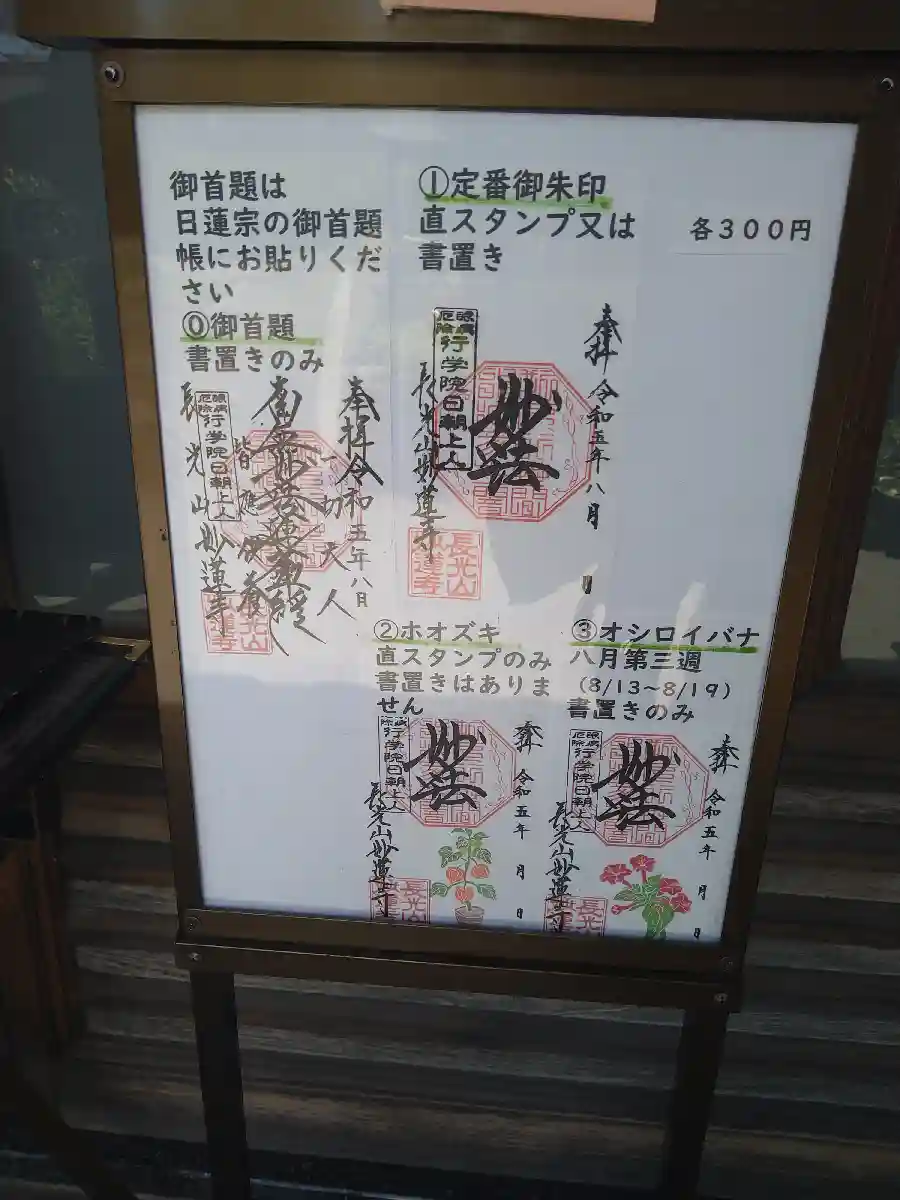 御首題は
日蓮宗の御首題
帳にお貼りくだ
さい
⓪御首題
書置きのみ
奉拝 令和五年八月
一切天人
南無妙法蓮華経
皆應供養
眼病
厄除
行学院日朝上人
長光山妙蓮寺
長光山
妙蓮寺
①定番御朱印
直スタンプ又は
書置き
各300円
奉拝 令和五年八月 日
妙法
眼病
厄除
行学院日朝上人
長光山妙蓮寺
長光山
妙蓮寺
②ホオズキ
直スタンプのみ
書置きはありま
せん
奉拝 令和五年 月 日
妙法
眼病
厄除
行学院日朝上人
長光山妙蓮寺
長光山
③オシロイバナ
八月第三週
(8/13~8/19)
書置きのみ
奉拝 令和五年 月 日
妙法
眼病
厄除
行学院日朝上人
長光山妙蓮寺
長光山